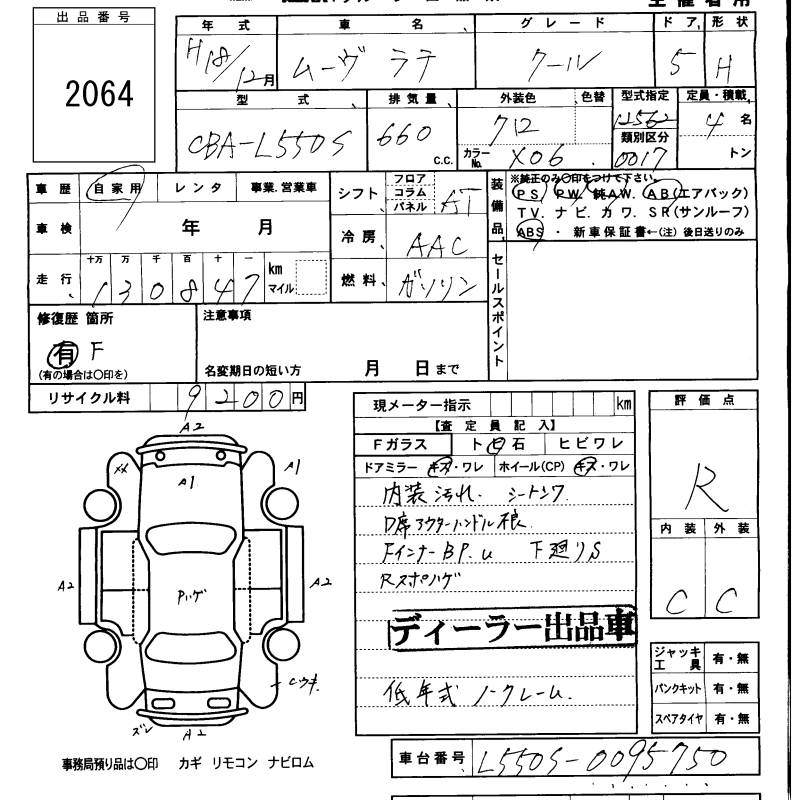 出品番号
2064
年式 車名 グレード ドア 形状
H18/12月 ムーヴ ラテ クール 5 H
型式 排気量 外装色 色替 型式指定 定員・積載
CBA-L550S 660 C.C. 712 12562 4名
カラーNo. X06 類別区分 0017 トン
車歴 自家用 レンタ 事業.営業車
車検 年 月
走行 十万 万 千 百 十 一
130847 km マイル
シフト フロア コラム パネル AT
冷房 AAC
燃料 ガソリン
装備品
※純正のみ〇印をつけて下さい。
PS. PW. 純AW. AB(エアバック)
TV. ナビ. カワ. SR(サンルーフ)
ABS ・ 新車保証書←(注) 後日送りのみ
セールスポイント
修復歴 箇所
有 F
(有の場合は〇印を)
注意事項
名変期日の短い方 月 日まで
リサイクル料 9200円
現メーター指示 km
【査定員記入】
Fガラス ト日石 ヒビワレ
ドアミラー キズ・ワレ ホイール(CP) キズ・ワレ
内装汚れ. シートシワ
D席アウターハンドル根.
Fインナー BP.u 下廻りS
Rスポハゲ
ディーラー出品車
低年式 ノークレーム.
評価点
R
内装 外装
C C
ジャッキ工具 有・無
パンクキット 有・無
スペアタイヤ 有・無
車台番号 L550S-0095750
A2
A1
A1
A2
A2
Pハゲ
Cウキ
ズレ
A2
事務局預り品は〇印 カギ リモコン ナビロム